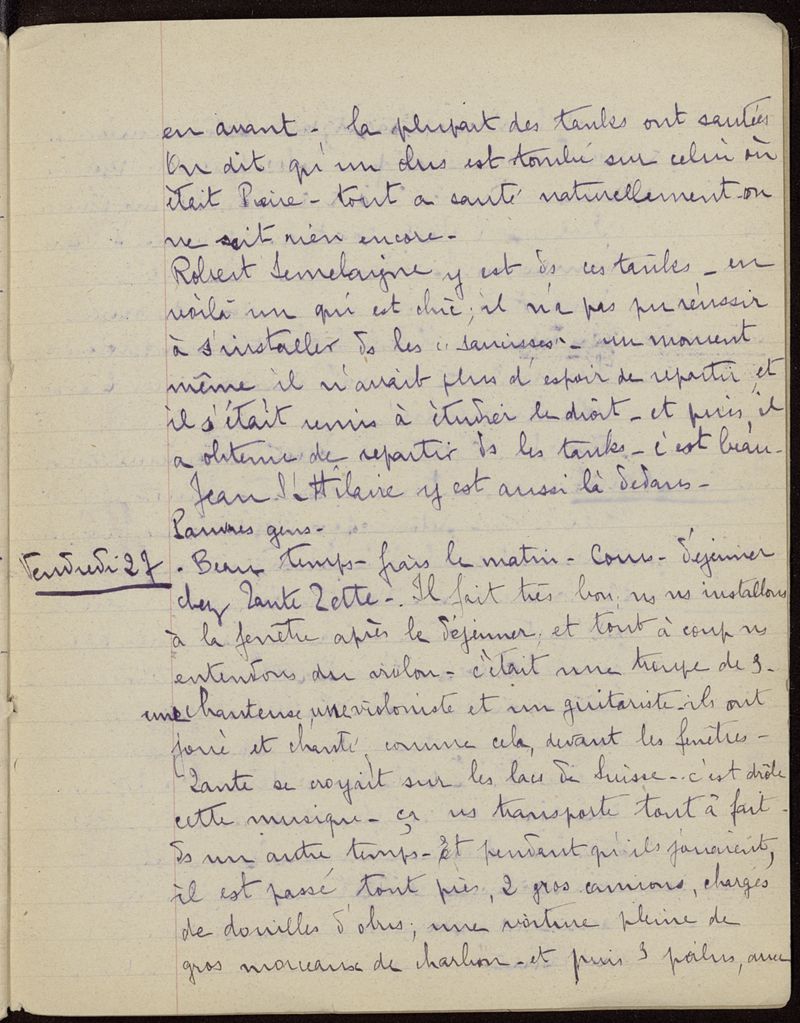 en avant - la plupart des tanks ont sautées
On dit qu'un obus est tombé sur celui où
était Pierre - tout a sauté naturellement - on
ne sait rien encore -
Robert Lemelaigne y est ds ces tanks - en
voilà un qui est chic; il n'a pas pu réussir
à s'installer ds les "saucisses" - un moment
même il n'avait plus d'espoir de repartir, et
il s'était remis à étudier le droit - et puis, il
a obtenu de repartir ds les tanks - c'est beau -
Jean St Hilaire y est aussi là dedans -
Pauvres gens -
Vendredi 27
. Beau temps - frais le matin - Cours - déjeuner
chez Tante Zette -. Il fait très bon, ns ns installons
à la fenêtre après le déjeuner, et tout à coup ns
entendons du violon - c'était une troupe de 3 -
une chanteuse, une violoniste et un guitariste - ils ont
joué et chanté, comme cela, devant les fenêtres -
Tante se croyait sur les lacs de Suisse - c'est drôle
cette musique - ça ns transporte tout à fait -
ds un autre temps - Et pendant qu'ils jouaient,
il est passé tout près, 2 gros camions, chargés
de douilles d'obus; une voiture pleine de
gros morceaux de charbon - et puis 3 poilus, avec